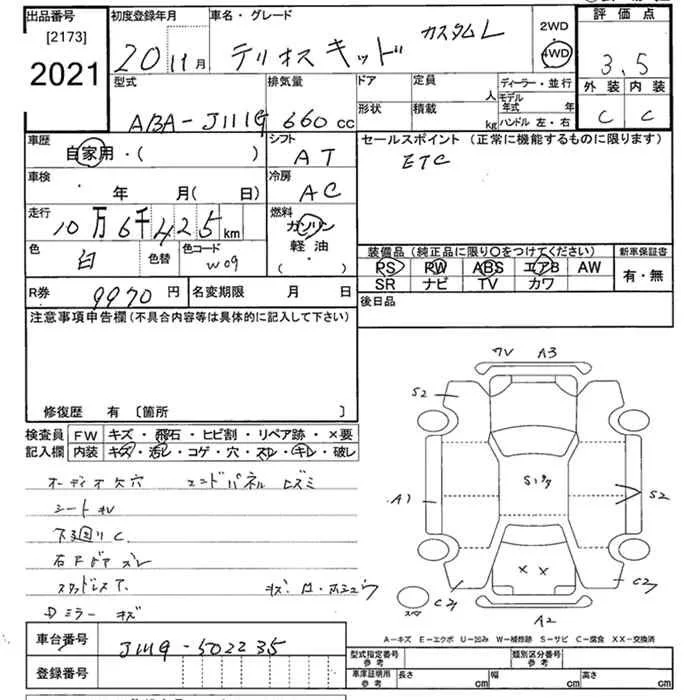 出品番号
[2173]
2021
初度登録年月
20 11月
車名・グレード
テリオスキッド カスタムL
2WD
4WD
評価点
3.5
外装 内装
C C
型式
ABA-J111G
排気量
660cc
ドア
定員
人
形状
積載
kg
ディーラー・並行
モデル年式 年
ハンドル 左・右
車歴
自家用・( )
シフト
AT
セールスポイント (正常に機能するものに限ります)
ETC
車検
年 月( 日)
冷房
AC
走行
10万6千425km
燃料
ガソリン
軽油
( ・ )
色
白
色替
色コード
W09
装備品 (純正品に限り〇をつけてください)
新車保証書
PS PW ABS エアB AW
SR ナビ TV カワ
有・無
R券
9970円
名変期限 月 日
後日品
注意事項申告欄(不具合内容等は具体的に記入して下さい)
修復歴 有 〔箇所 〕
検査員記入欄
FW キズ・飛石・ヒビ割・リペア跡・×要
内装 キズ・汚レ・コゲ・穴・スレ・キレ・破レ
オーディオ欠穴 エンドパネル
シート
下廻りC
右
スタッドレスT.
Dミラー キズ
A3
S2
A1
S2
××
C2
スペア
C2
A2
A-キズ E-エクボ U-凹み W-補修跡 S-サビ C-腐食 XX-交換済
車台番号
J111G-502235
登録番号
型式指定番号
参考
類別区分番号
参考
車庫証明用
参考
長さ cm
幅 cm
高さ cm